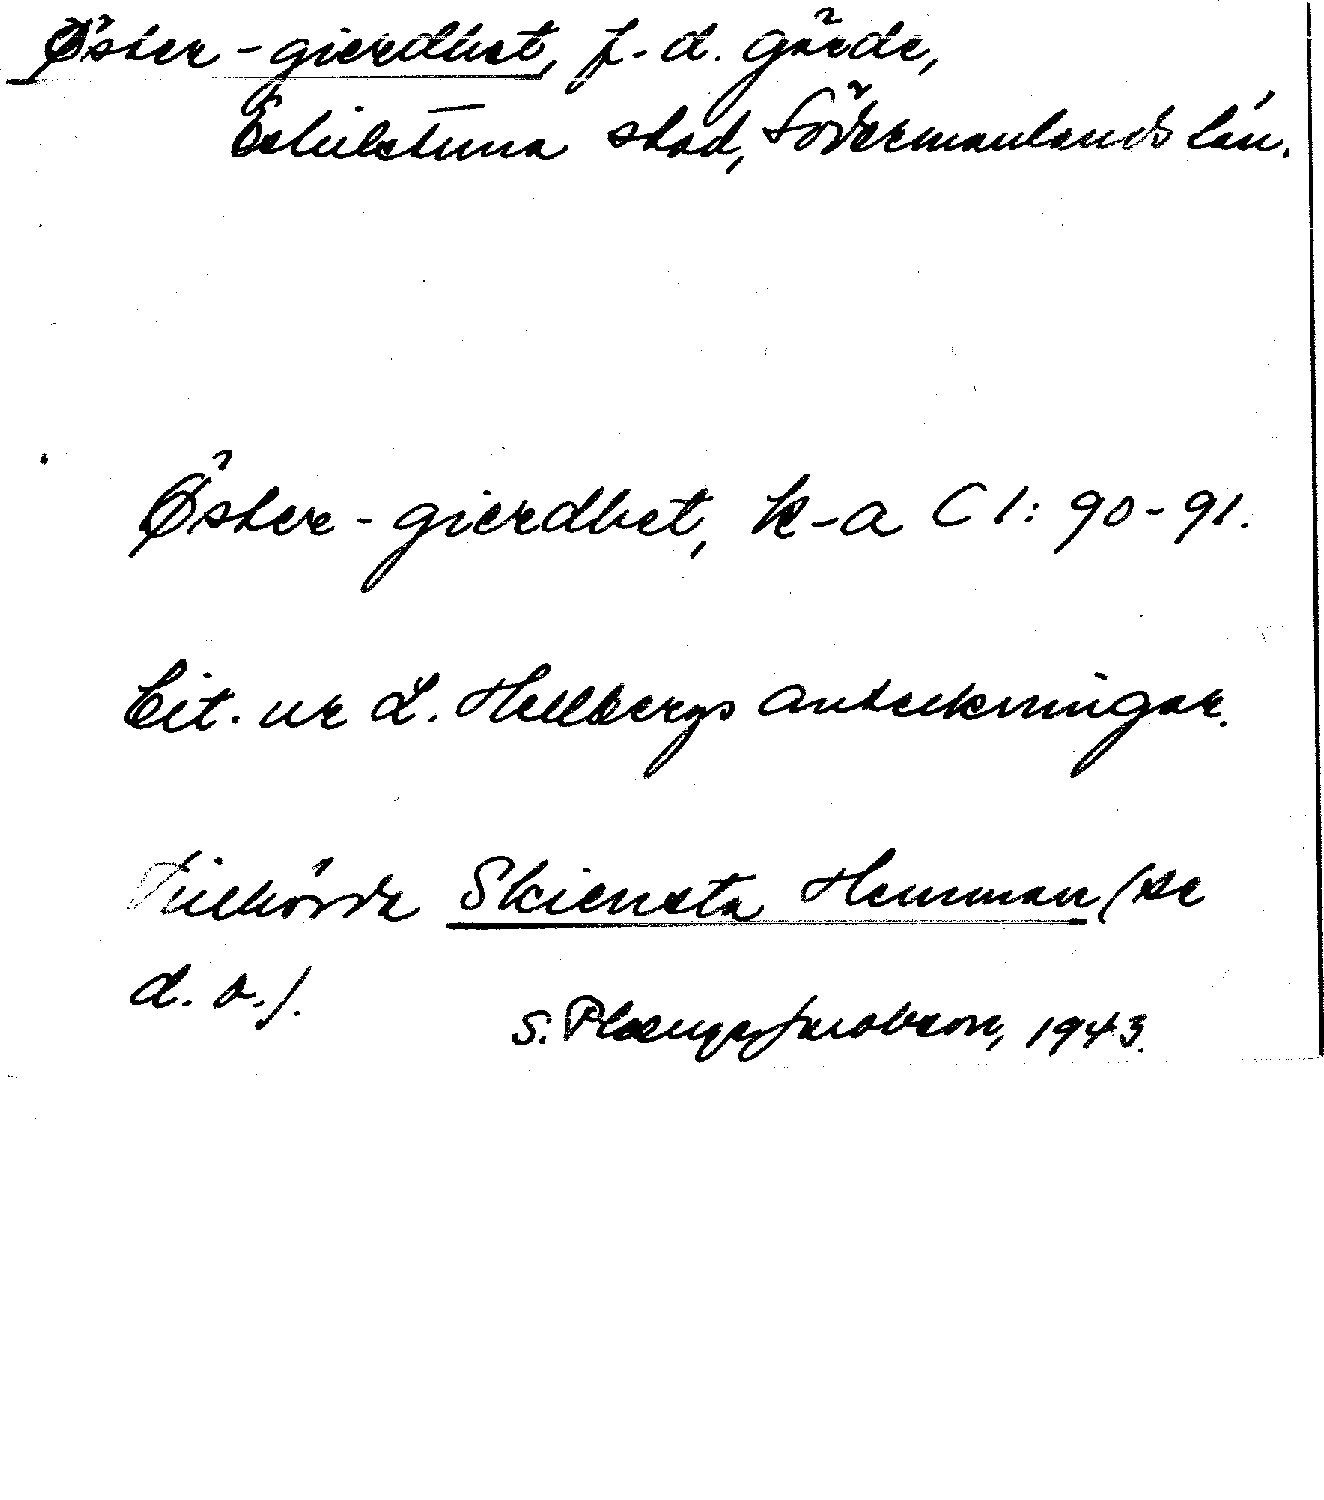 Öster-gierdhet, f.d. gärde,
Eskilstuna stad, Södermanlands län.
Öster-gierdhet, k-a C1: 90-91.
Cit. ur L. Hellbergs anteckningar.
Tillhörde Skiensta Hemman (se
d. o.).
S. Jacobson, 1943.